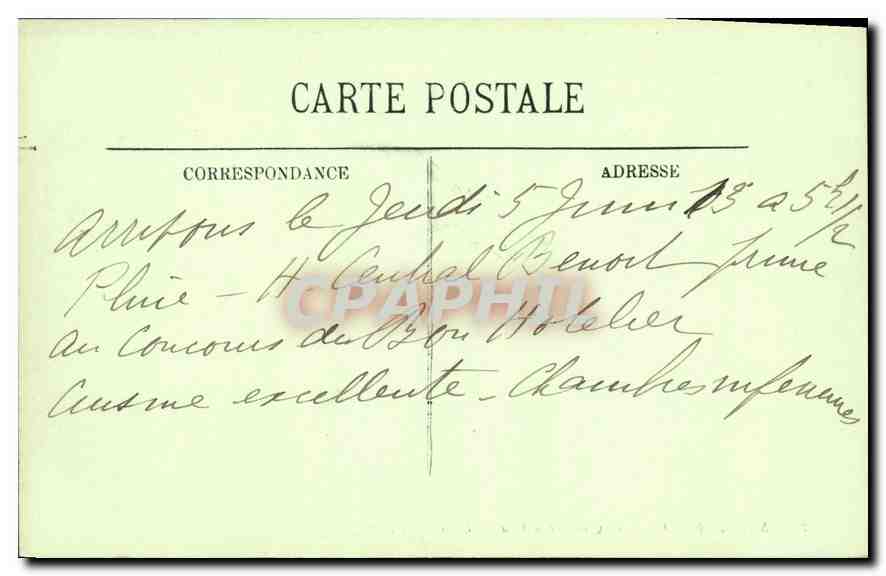 CARTE POSTALE
CORRESPONDANCE
ADRESSE
Arrivons le Jeudi 5 Juin 13 a 5h 1/2
Pluie - H Central Benoit prime
au Concours du Bon Hotelier
Cuisine excellente - Chambres
CPAPHIL